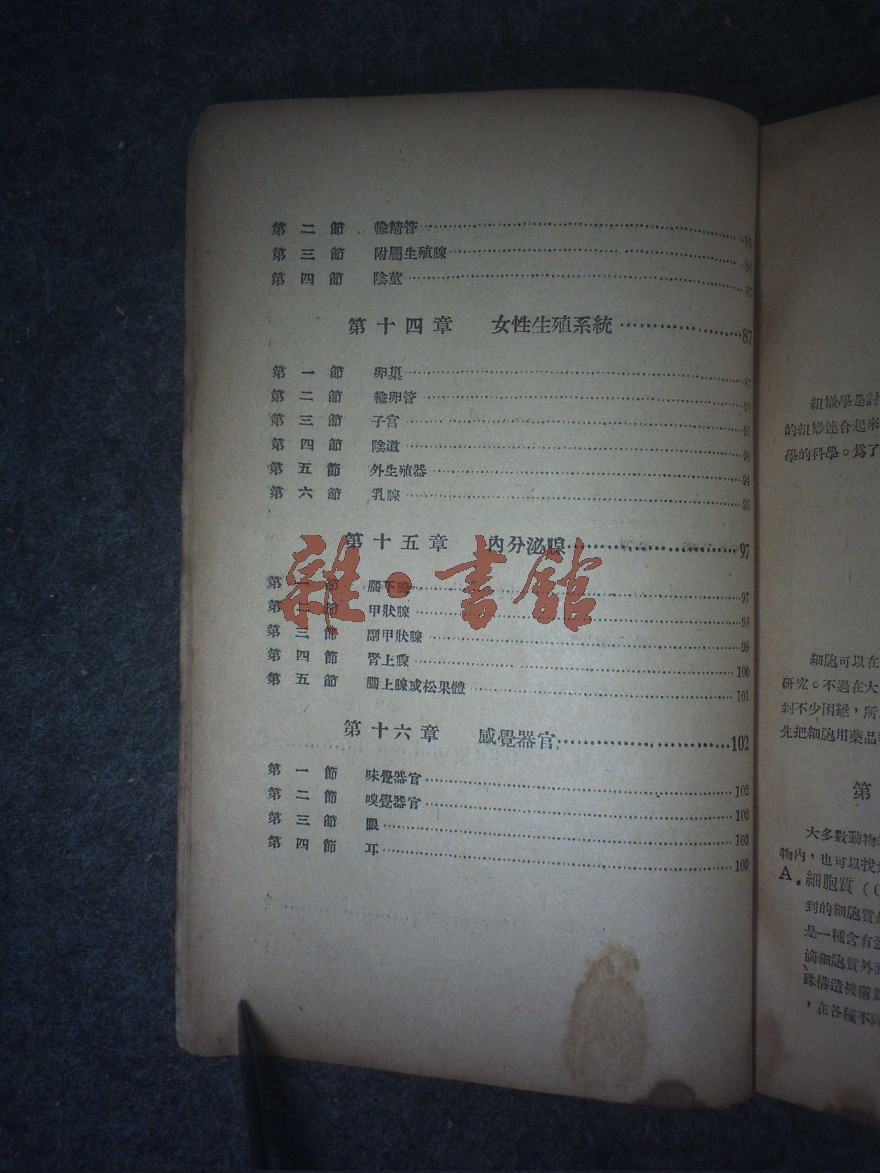 第二節 輸精管
第三節 附屬生殖腺
第四節 陰莖 87
第十四章 女性生殖系統 87
第一節 卵巢 87
第二節 輸卵管 91
第三節 子宮 91
第四節 陰道 94
第五節 外生殖器 94
第六節 乳腺
第十五章 內分泌腺 97
第一節 腦下腺 97
第二節 甲狀腺 98
第三節 副甲狀腺 99
第四節 腎上腺 100
第五節 腦上腺或松果體 101
第十六章 感覺器官 102
第一節 味覺器官 102
第二節 嗅覺器官
第三節 眼 103
第四節 耳 109
雜·書館
組織學是討
的組織連合起來
學的科學。爲了
細胞可以在
研究。不過在大
到不少困難，所
先把細胞用藥品
第
大多數動物
物內，也可以找
A. 細胞質 (C
到的細胞質是
是一種含有
滴細胞質外
珠構造被稱
，在各種不同